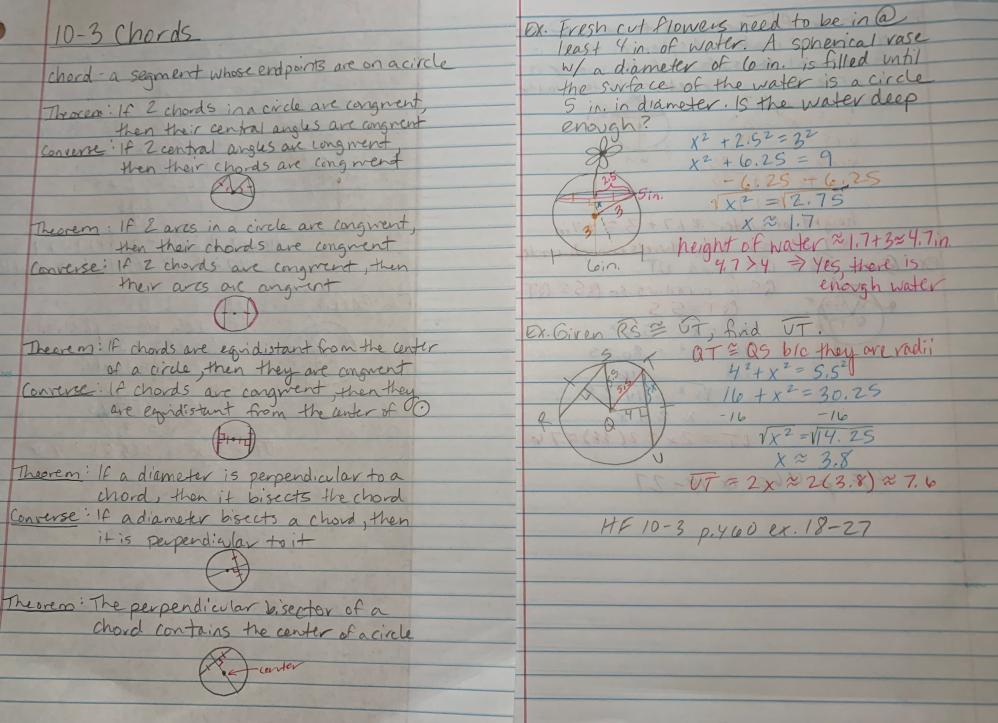 10-3 Chords
chord - a segment whose endpoints are on a circle
Theorem: If 2 chords in a circle are congruent,
then their central angles are congruent
Converse: If 2 central angles are congruent,
then their chords are congruent
Theorem: If 2 arcs in a circle are congruent,
then their chords are congruent
Converse: If 2 chords are congruent, then
their arcs are congruent
Theorem: If chords are equidistant from the center
of a circle, then they are congruent
Converse: If chords are congruent, then they
are equidistant from the center of ⊙
Theorem: If a diameter is perpendicular to a
chord, then it bisects the chord
Converse: If a diameter bisects a chord, then
it is perpendicular to it
Theorem: The perpendicular bisector of a
chord contains the center of a circle
center
Ex. Fresh cut flowers need to be in @
least 4 in. of water. A spherical vase
w/ a diameter of 6 in. is filled until
the surface of the water is a circle
5 in. in diameter. Is the water deep
enough?
2.5
5in.
x
3
3
6in.
x² + 2.5² = 3²
x² + 6.25 = 9
-6.25 -6.25
√x² = √2.75
x ≈ 1.7
height of water ≈ 1.7+3 ≈ 4.7in.
4.7 > 4 ⇒ Yes, there is
enough water
Ex. Given RS ≅ UT, find UT.
S
T
R
Q
U
5.5
5.5
4
x
QT ≅ QS b/c they are radii
4² + x² = 5.5²
16 + x² = 30.25
-16 -16
√x² = √14.25
x ≈ 3.8
UT = 2x ≈ 2(3.8) ≈ 7.6
HF 10-3 p.460 ex. 18-27